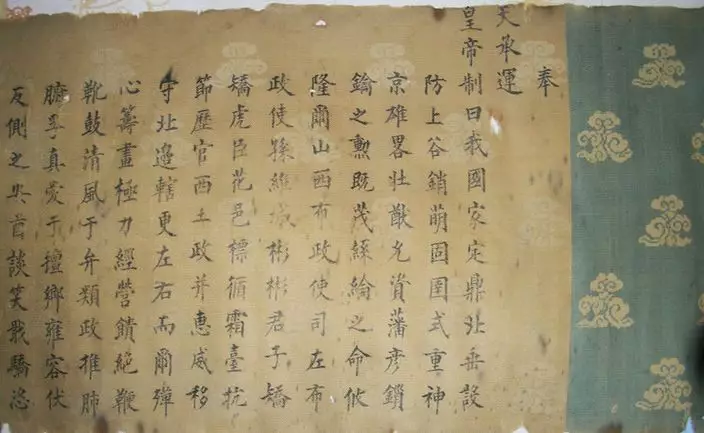 奉
天承運
皇帝制曰我國家定鼎北垂設
防上谷銷萌固圉式重神
京雄畧壯猷允資藩彦鎖
鑰之勳既茂絲綸之命攸
隆爾山西布政使司左布
政使孫維城彬彬君子矯
矯虎臣花邑標循霜臺抗
節歷官西土政并惠威移
守北邊轄更左右而爾殫
心籌畫極力經營饋絕鞭
靴鼓清風于弁類政推肺
孚真愛于鄉雍容伏
反側之首談笑戢驕恣